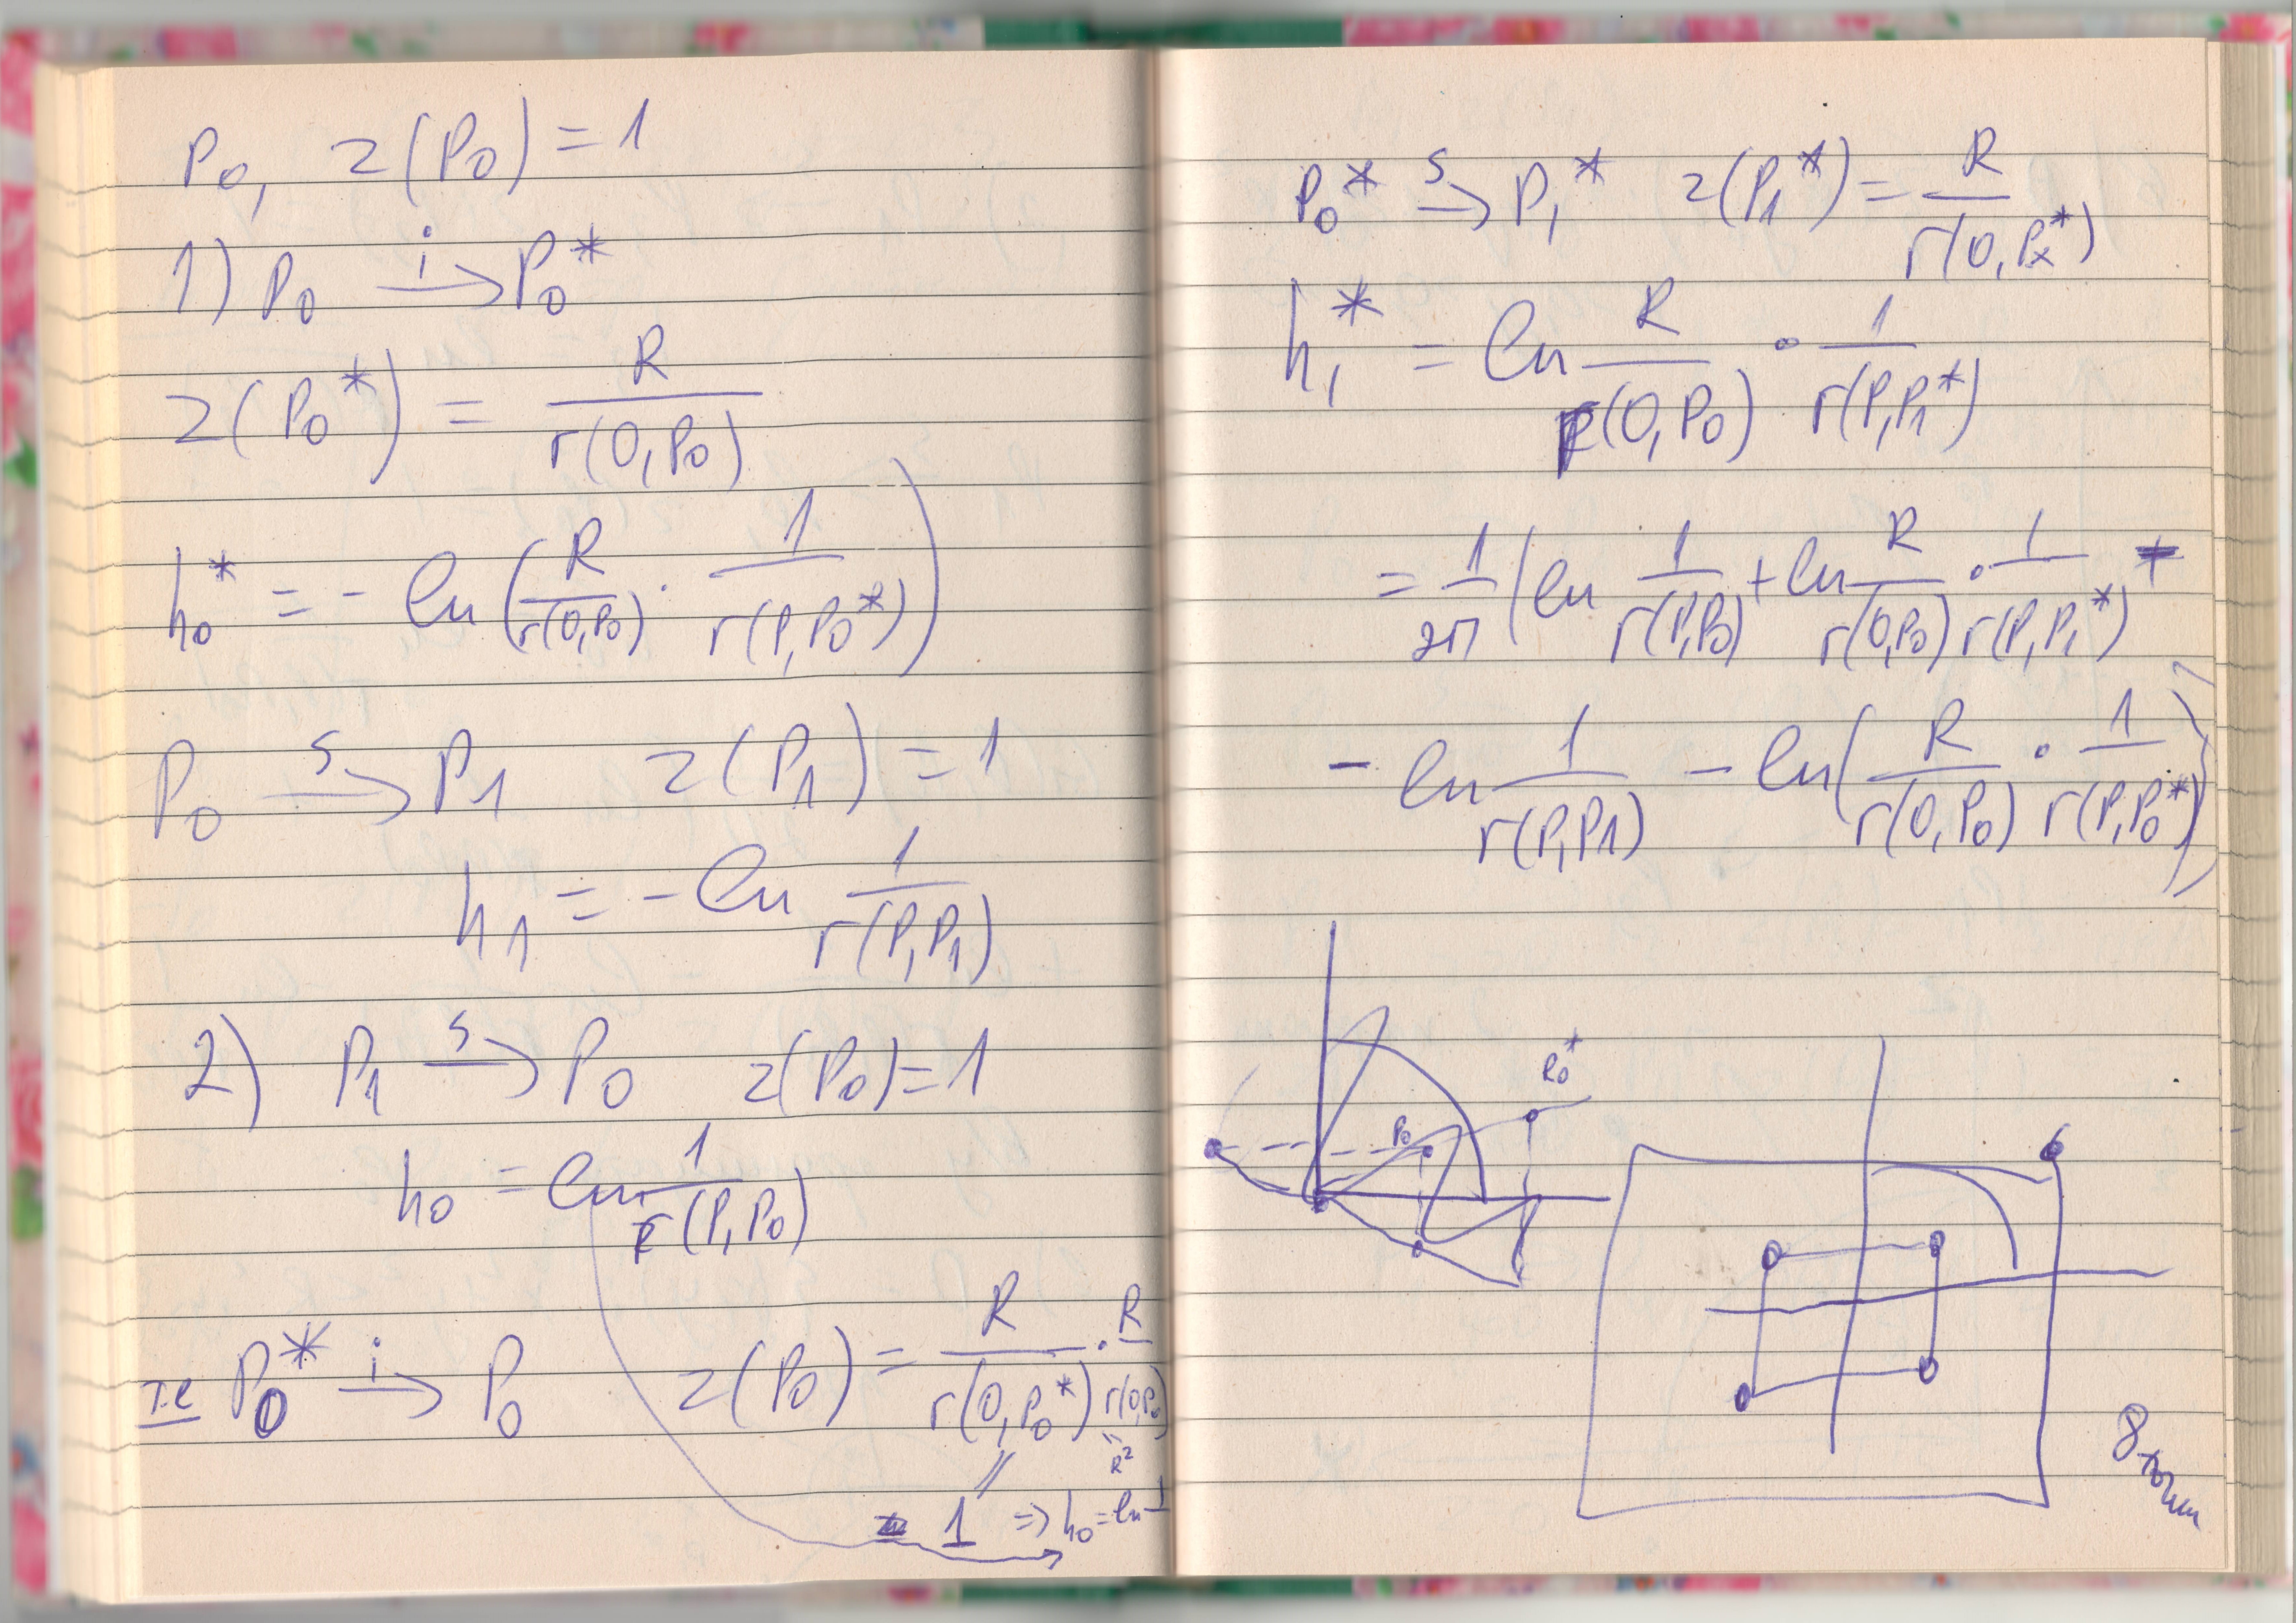 P₀, z(P₀) = 1
1) P₀ →ⁱ P₀*
z(P₀*) = R / r(0,P₀)
h₀* = - ln(R / r(0,P₀) · 1 / r(P,P₀*))
P₀ →ˢ P₁ z(P₁) = 1
h₁ = - ln 1 / r(P,P₁)
2) P₁ →ˢ P₀ z(P₀) = 1
h₀ = ln 1 / r(P,P₀)
т.е P₀* →ⁱ P₀ z(P₀) = R / r(0,P₀*) · R / r(0,P₀)
R²
= 1 ⇒ h₀ = ln 1
P₀* →ˢ P₁* z(P₁*) = R / r(0,Pₓ*)
h₁* = ln R / r(0,P₀) · 1 / r(P,P₁*)
= 1 / 2π (ln 1 / r(P,P₀) + ln R / r(0,P₀) · 1 / r(P,P₁*)
- ln 1 / r(P,P1) - ln(R / r(0,P₀) · 1 / r(P,P₀*)))
P₀*
P₀
8